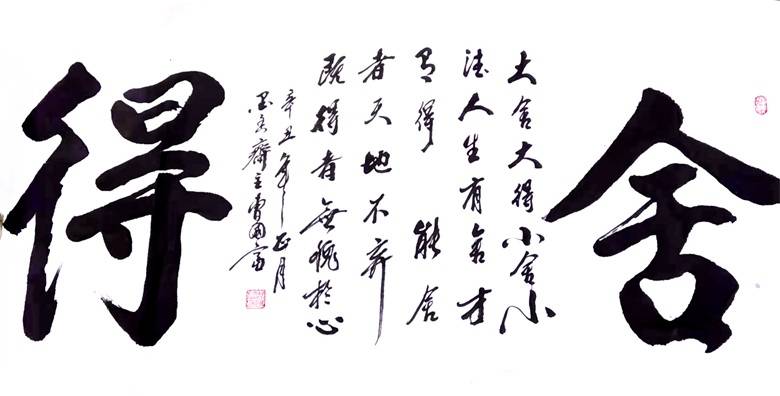 舍
大舍大得小舍小
得人生有舍才
有得 能舍
者天地不弃
既得者無愧於心
辛丑年正月
墨香齋主曹国富
得